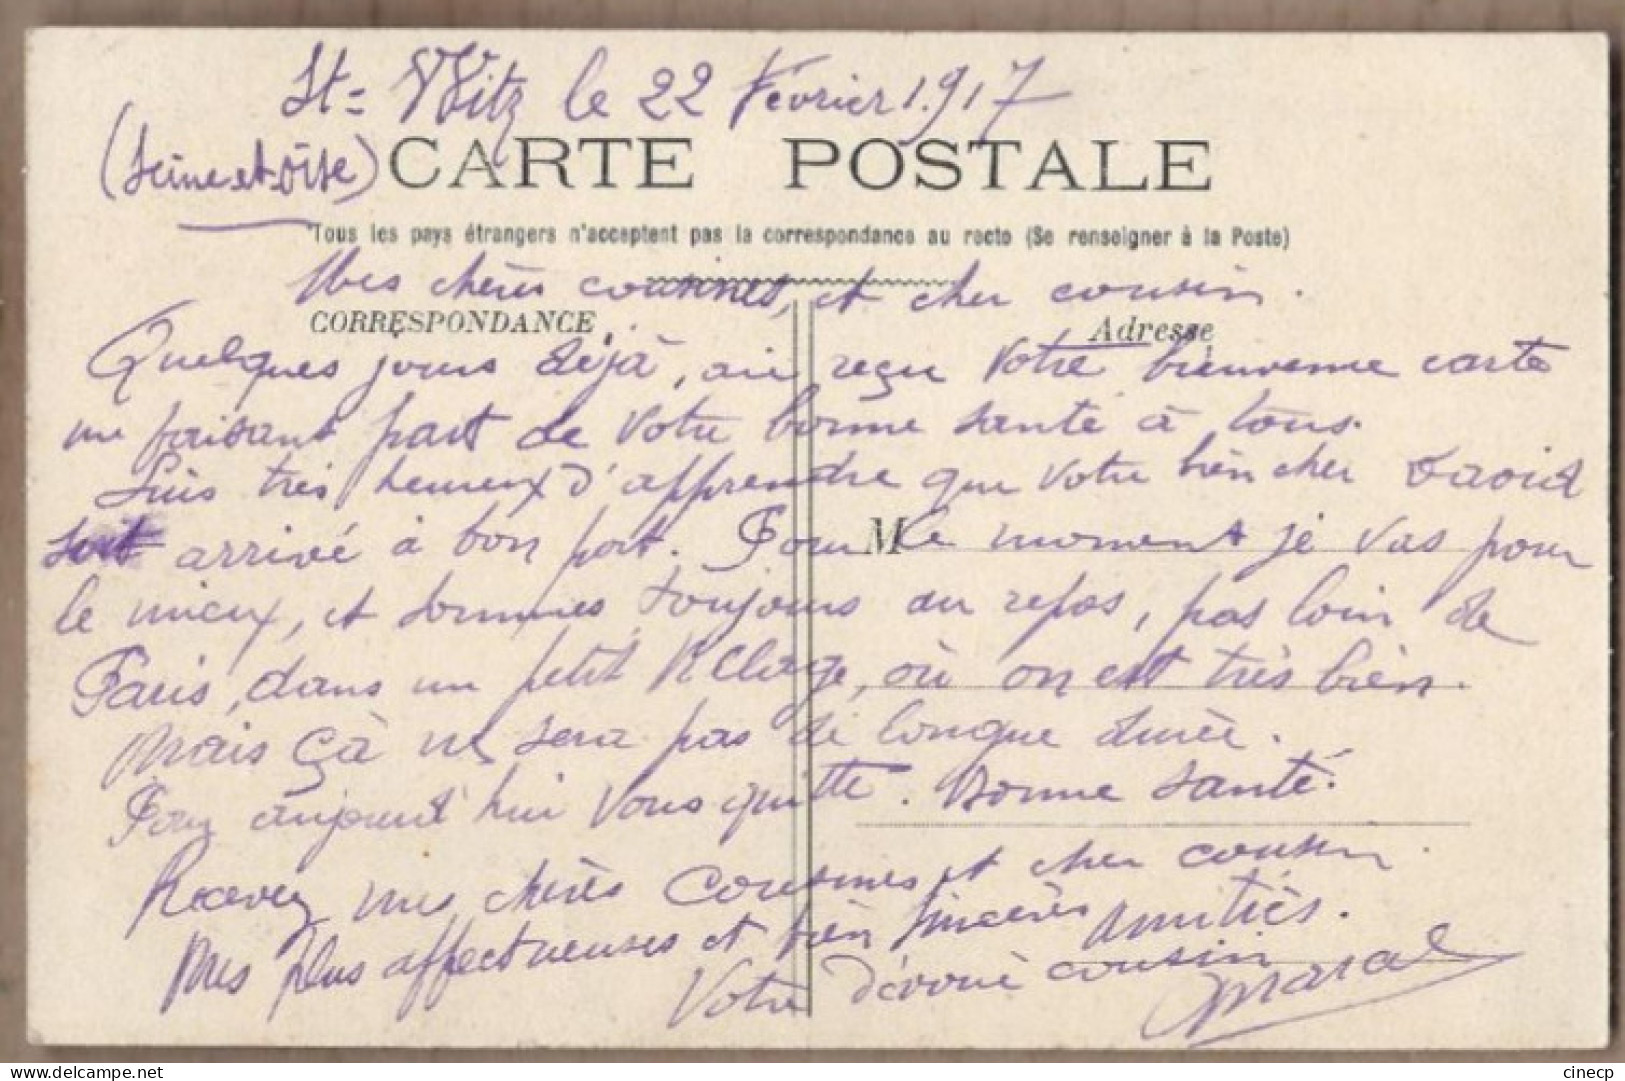 St= Witz le 22 Février 1917
(Seine-et-Oise)
CARTE POSTALE
Tous les pays étrangers n'acceptent pas la correspondance au recto (Se renseigner à la Poste)
Mes chères cousines, et cher cousin.
CORRESPONDANCE
Adresse
Quelques jours déjà, ai reçu votre bienvenue carte
me faisant part de votre bonne santé à tous.
Suis très heureux d'apprendre que votre bien cher David
soit arrivé à bon port. Pour le moment je vas pour
M
le mieux, et sommes toujours au repos, pas loin de
Paris, dans un petit village, où on est très bien.
Mais çà ne sera pas de longue durée.
Pour aujourd'hui vous quitte. Bonne santé.
Recevez mes chères cousines et cher cousin
mes plus affectueuses et bien sincères amitiés.
Votre dévoué cousin
cinecp